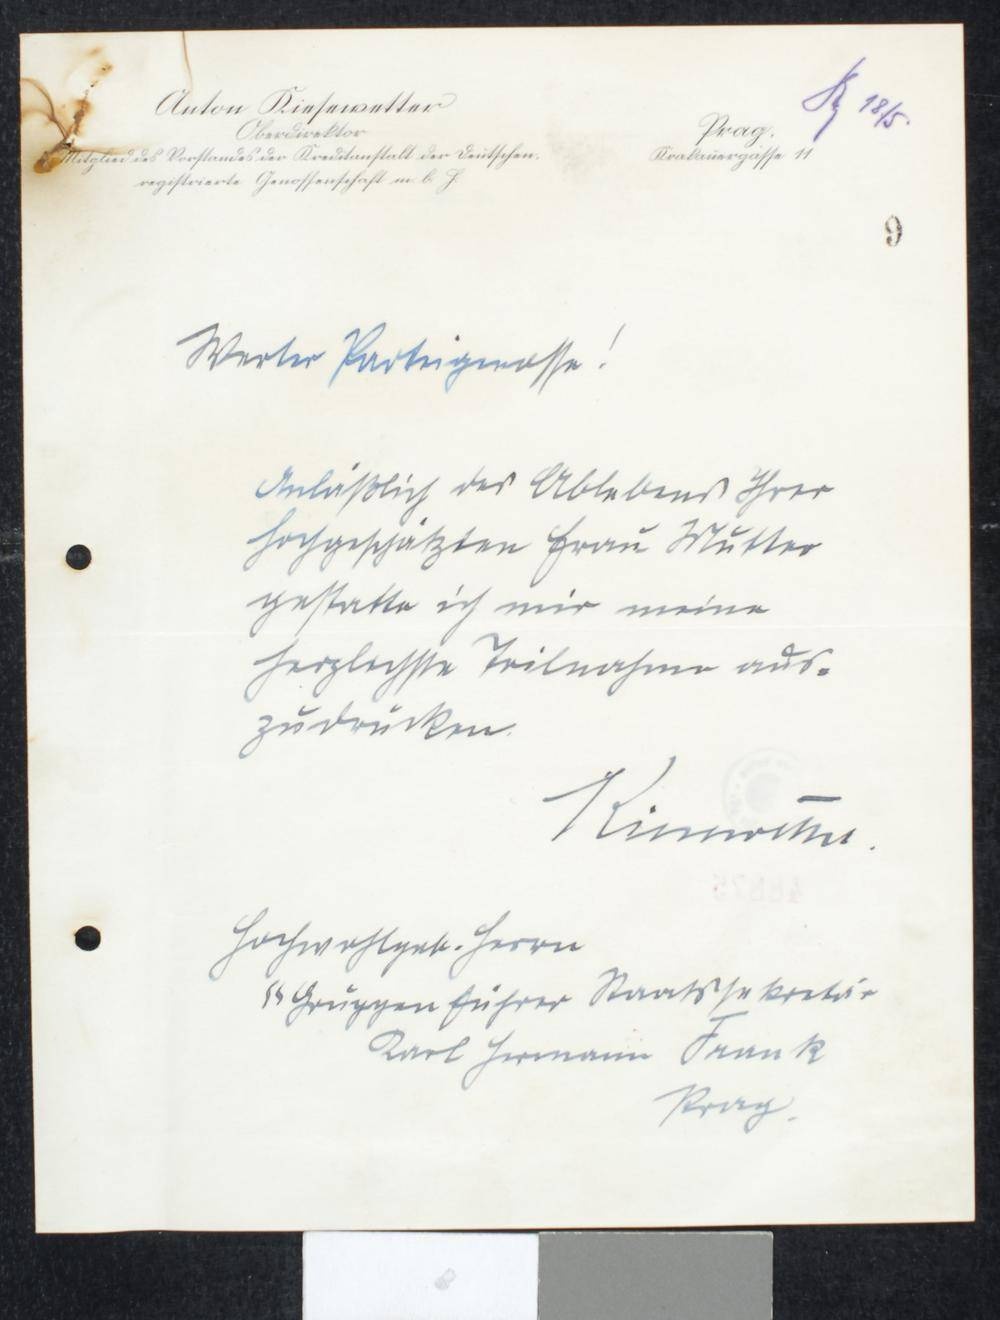 Anton Kiesewetter
Oberdirektor
Mitglied des Vorstandes der Kreditanstalt der Deutschen,
registrierte Genossenschaft m. b. H.
Prag,
Krakauergasse 11
18/5.
9
Werter Parteigenosse!
Anläßlich des Ablebens Ihrer
hochgeschätzten Frau Mutter
gestatte ich mir meine
herzlichste Teilnahme aus-
zudrücken.
Kiesewetter.
Hochwohlgeb. Herrn
SS Gruppenführer Staatssekretär
Karl Hermann Frank
Prag.